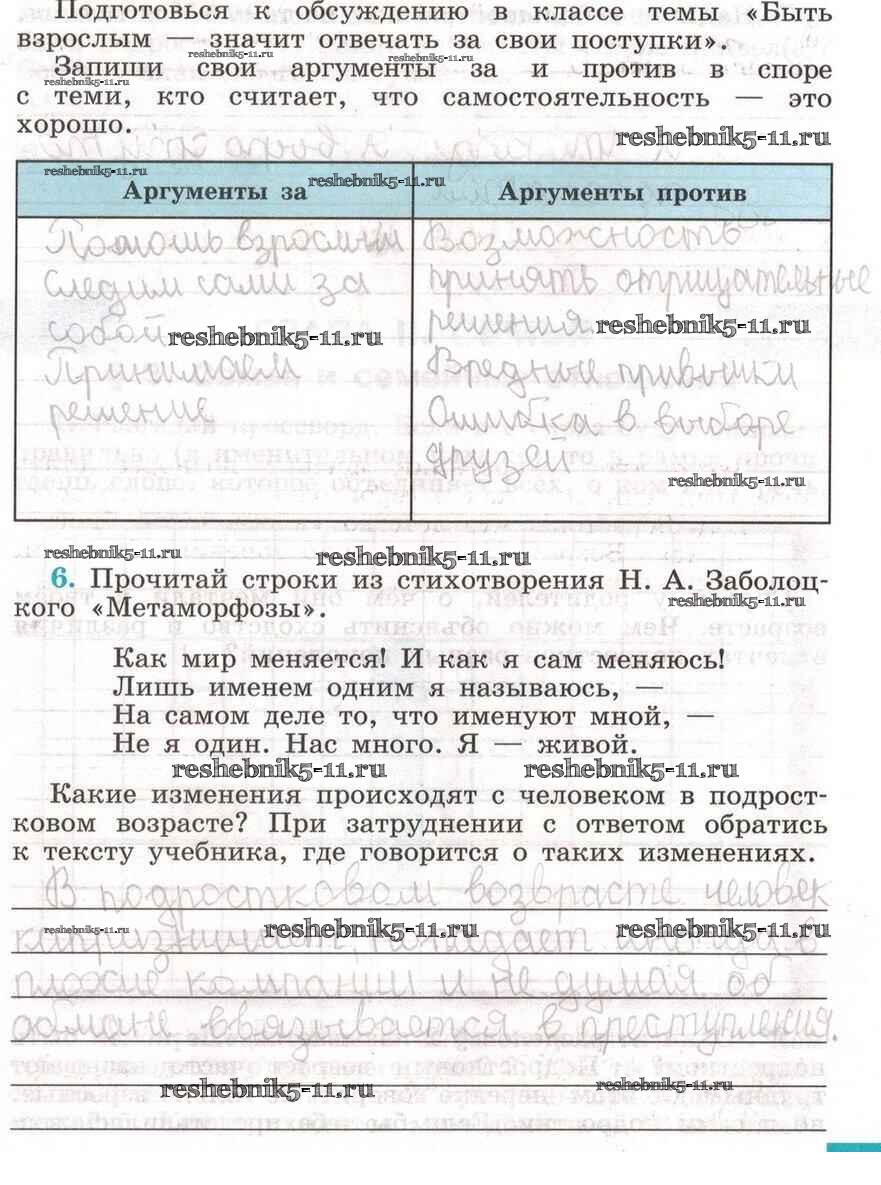 Подготовься к обсуждению в классе темы «Быть
взрослым — значит отвечать за свои поступки».
reshebnik5-11.ru reshebnik5-11.ru
Запиши свои аргументы за и против в споре
reshebnik5-11.ru
с теми, кто считает, что самостоятельность — это
хорошо.
reshebnik5-11.ru
reshebnik5-11.ru reshebnik5-11.ru
Аргументы за
Помошь взрослым
Следим сами за
собой reshebnik5-11.ru
Принимаем
решение
Аргументы против
Возможность
принять отрицательные
решения reshebnik5-11.ru
Вредные привычки
Ошибка в выборе
друзей
reshebnik5-11.ru
reshebnik5-11.ru reshebnik5-11.ru
6. Прочитай строки из стихотворения Н. А. Заболоц-
reshebnik5-11.ru
кого «Метаморфозы».
Как мир меняется! И как я сам меняюсь!
Лишь именем одним я называюсь, —
На самом деле то, что именуют мной, —
Не я один. Нас много. Я — живой.
reshebnik5-11.ru reshebnik5-11.ru
Какие изменения происходят с человеком в подрост-
ковом возрасте? При затруднении с ответом обратись
к тексту учебника, где говорится о таких изменениях.
В подростковом возврасте человек
reshebnik5-11.ru reshebnik5-11.ru reshebnik5-11.ru
плохие компании и не думая об
обмане ввязывается в преступления.
reshebnik5-11.ru reshebnik5-11.ru